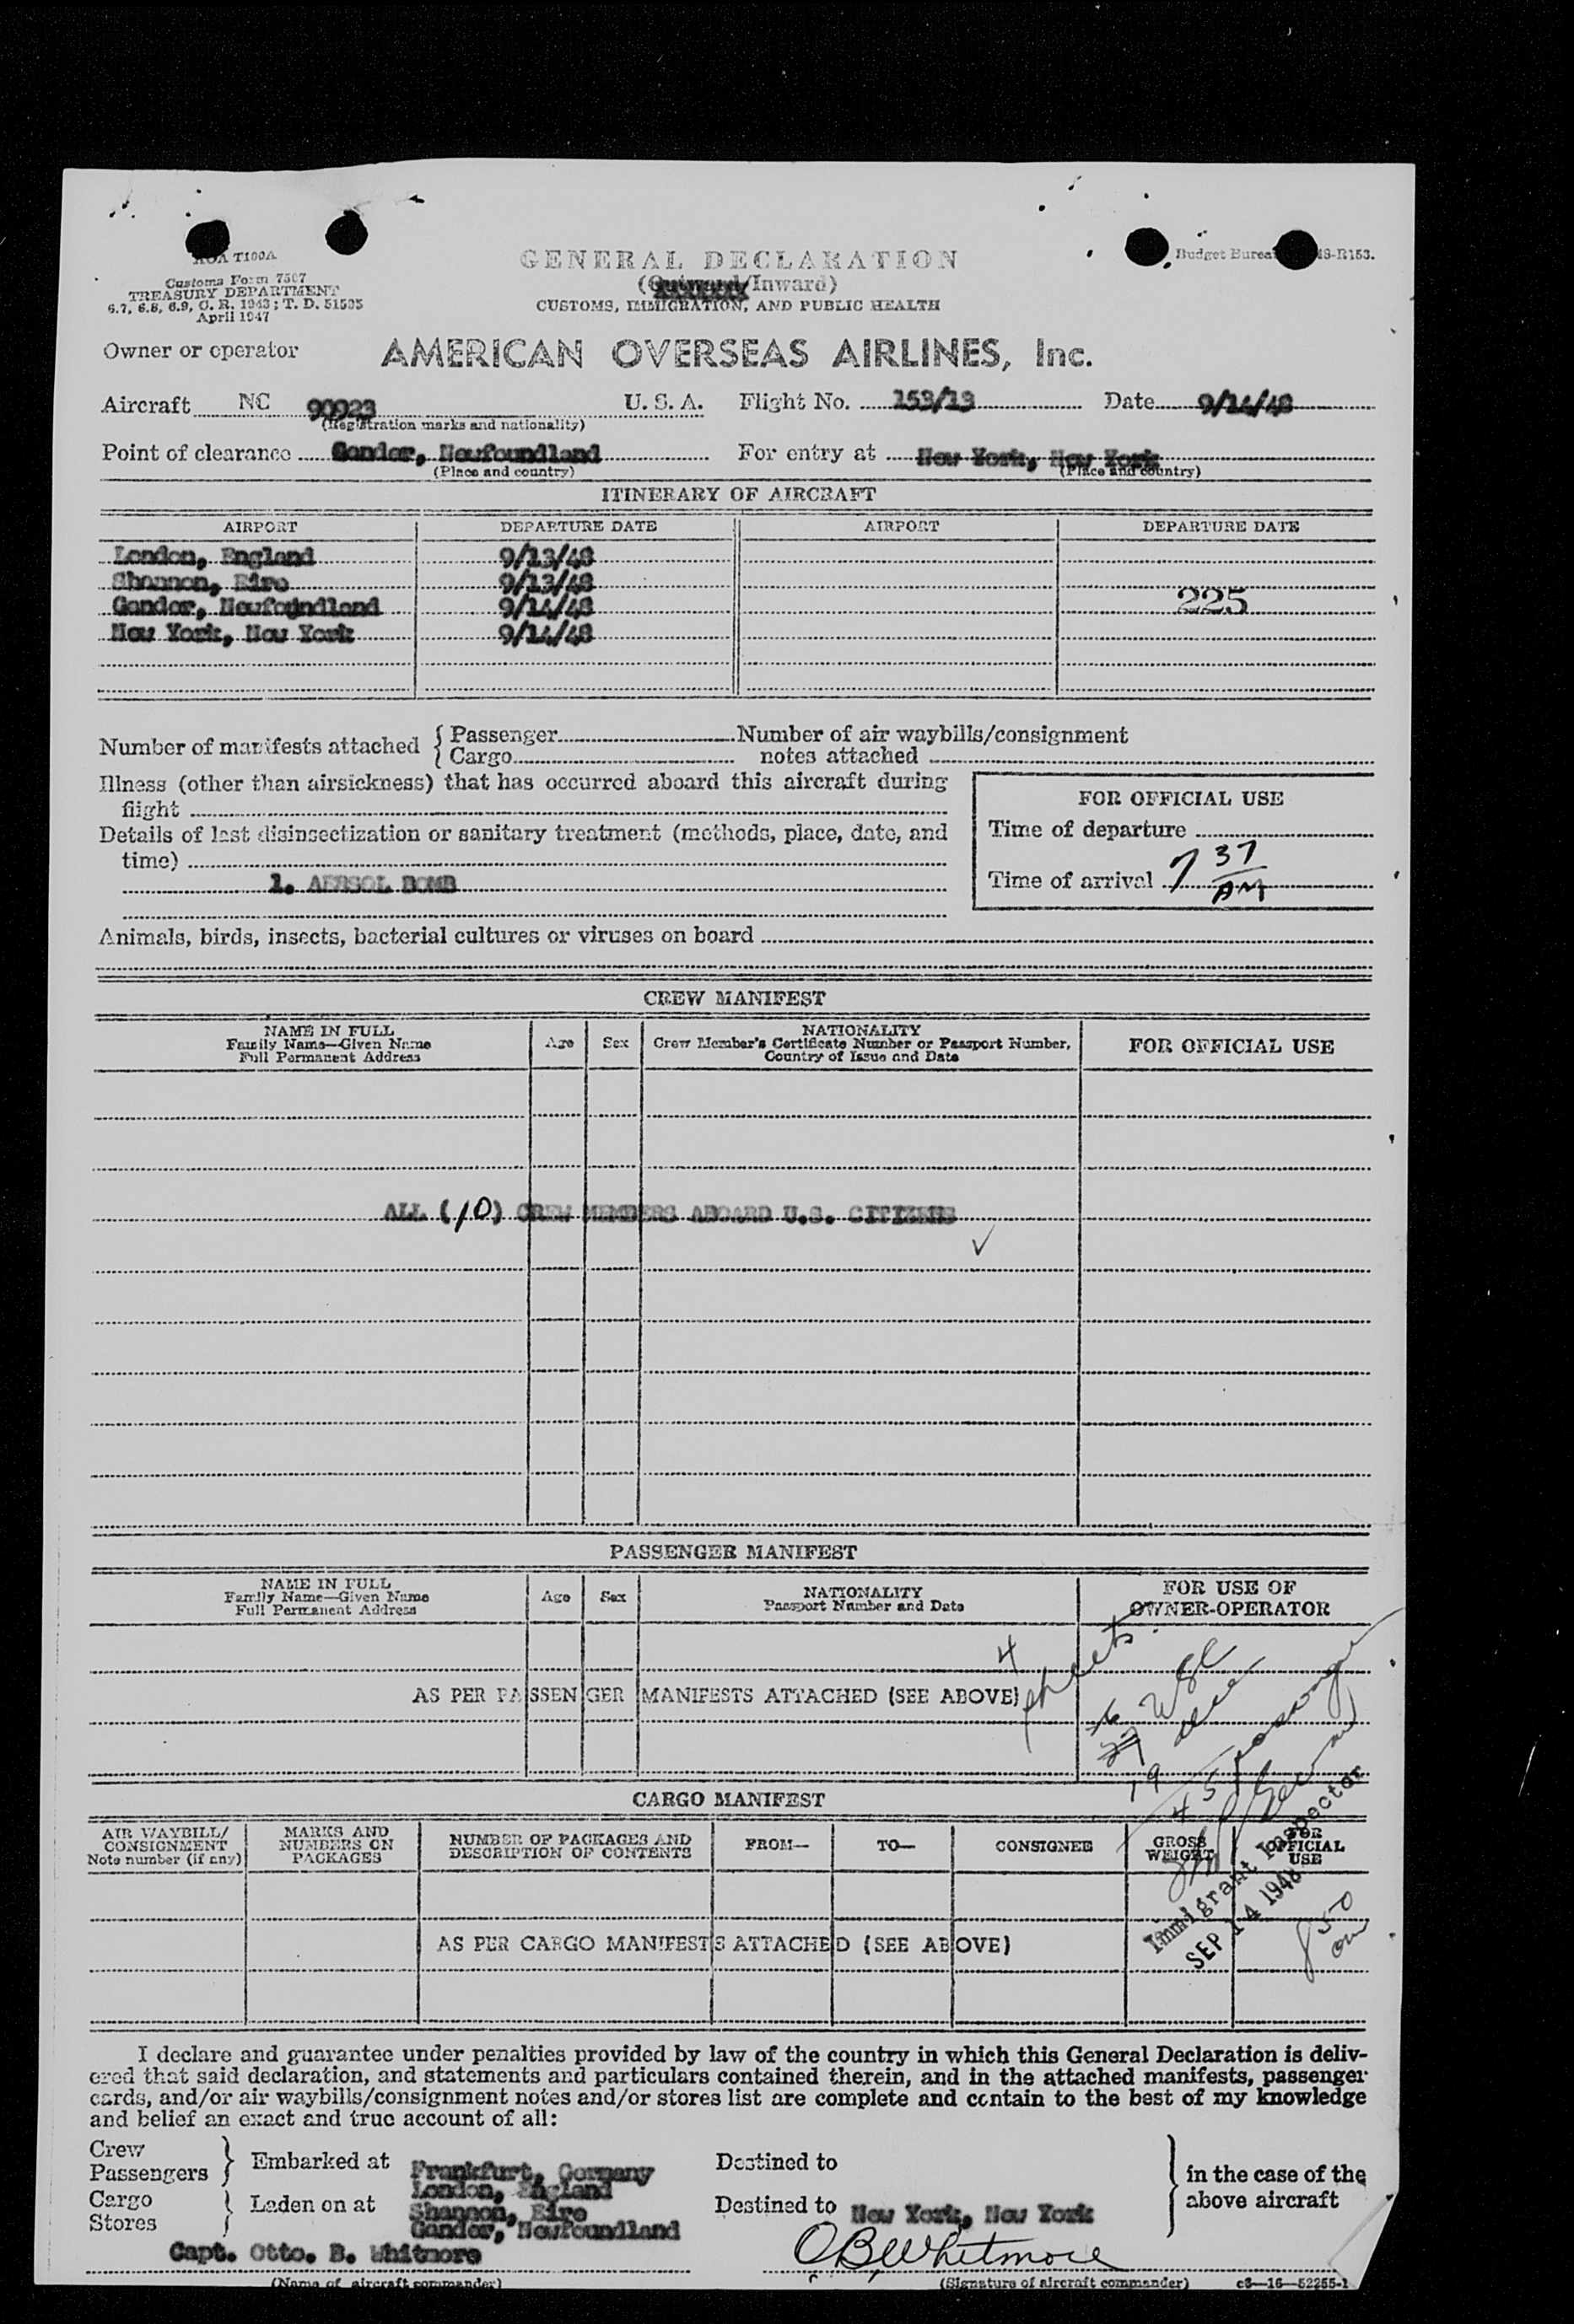 AOA T100A
Customs Form 7507
TREASURY DEPARTMENT
6.7, 6.8, 6.9, C. R. 1943; T. D. 51595
April 1947
GENERAL DECLARATION
(Outward/Inward)
CUSTOMS, IMMIGRATION, AND PUBLIC HEALTH
Budget Bureau 48-R153.
Owner or operator AMERICAN OVERSEAS AIRLINES, Inc.
Aircraft NC 90923 U. S. A. Flight No. 153/13 Date 9/14/48
(Registration marks and nationality)
Point of clearance Gander, Newfoundland For entry at New York, New York
(Place and country) (Place and country)
ITINERARY OF AIRCRAFT
AIRPORT DEPARTURE DATE AIRPORT DEPARTURE DATE
London, England 9/13/48
Shannon, Eire 9/13/48
Gander, Newfoundland 9/14/48 225
New York, New York 9/14/48
Number of manifests attached { Passenger Number of air waybills/consignment
Cargo notes attached
Illness (other than airsickness) that has occurred aboard this aircraft during
flight
Details of last disinsectization or sanitary treatment (methods, place, date, and
time)
1. AERSOL BOMB
FOR OFFICIAL USE
Time of departure
Time of arrival 7 37 AM
Animals, birds, insects, bacterial cultures or viruses on board
CREW MANIFEST
NAME IN FULL
Family Name—Given Name
Full Permanent Address
Age
Sex
NATIONALITY
Crew Member's Certificate Number or Passport Number,
Country of Issue and Date
FOR OFFICIAL USE
ALL (10) CREW MEMBERS ABOARD U.S. CITIZENS
✓
PASSENGER MANIFEST
NAME IN FULL
Family Name—Given Name
Full Permanent Address
Age
Sex
NATIONALITY
Passport Number and Date
FOR USE OF
OWNER-OPERATOR
4 sheets
AS PER PASSENGER MANIFESTS ATTACHED (SEE ABOVE)
27
19
45 passenger
CARGO MANIFEST
AIR WAYBILL/
CONSIGNMENT
Note number (if any)
MARKS AND
NUMBERS ON
PACKAGES
NUMBER OF PACKAGES AND
DESCRIPTION OF CONTENTS
FROM—
TO—
CONSIGNEE
GROSS
WEIGHT
FOR
OFFICIAL
USE
Immigrant Inspector
SEP 14 1948
850
AS PER CARGO MANIFESTS ATTACHED (SEE ABOVE)
I declare and guarantee under penalties provided by law of the country in which this General Declaration is deliv-
ered that said declaration, and statements and particulars contained therein, and in the attached manifests, passenger
cards, and/or air waybills/consignment notes and/or stores list are complete and contain to the best of my knowledge
and belief an exact and true account of all:
Crew
Passengers } Embarked at Frankfurt, Germany Destined to
London, England
Cargo
Stores } Laden on at Shannon, Eire Destined to New York, New York
Gander, Newfoundland
} in the case of the
above aircraft
Capt. Otto. B. Whitmore OBWhitmore
(Name of aircraft commander) (Signature of aircraft commander) c3—16—52255-1